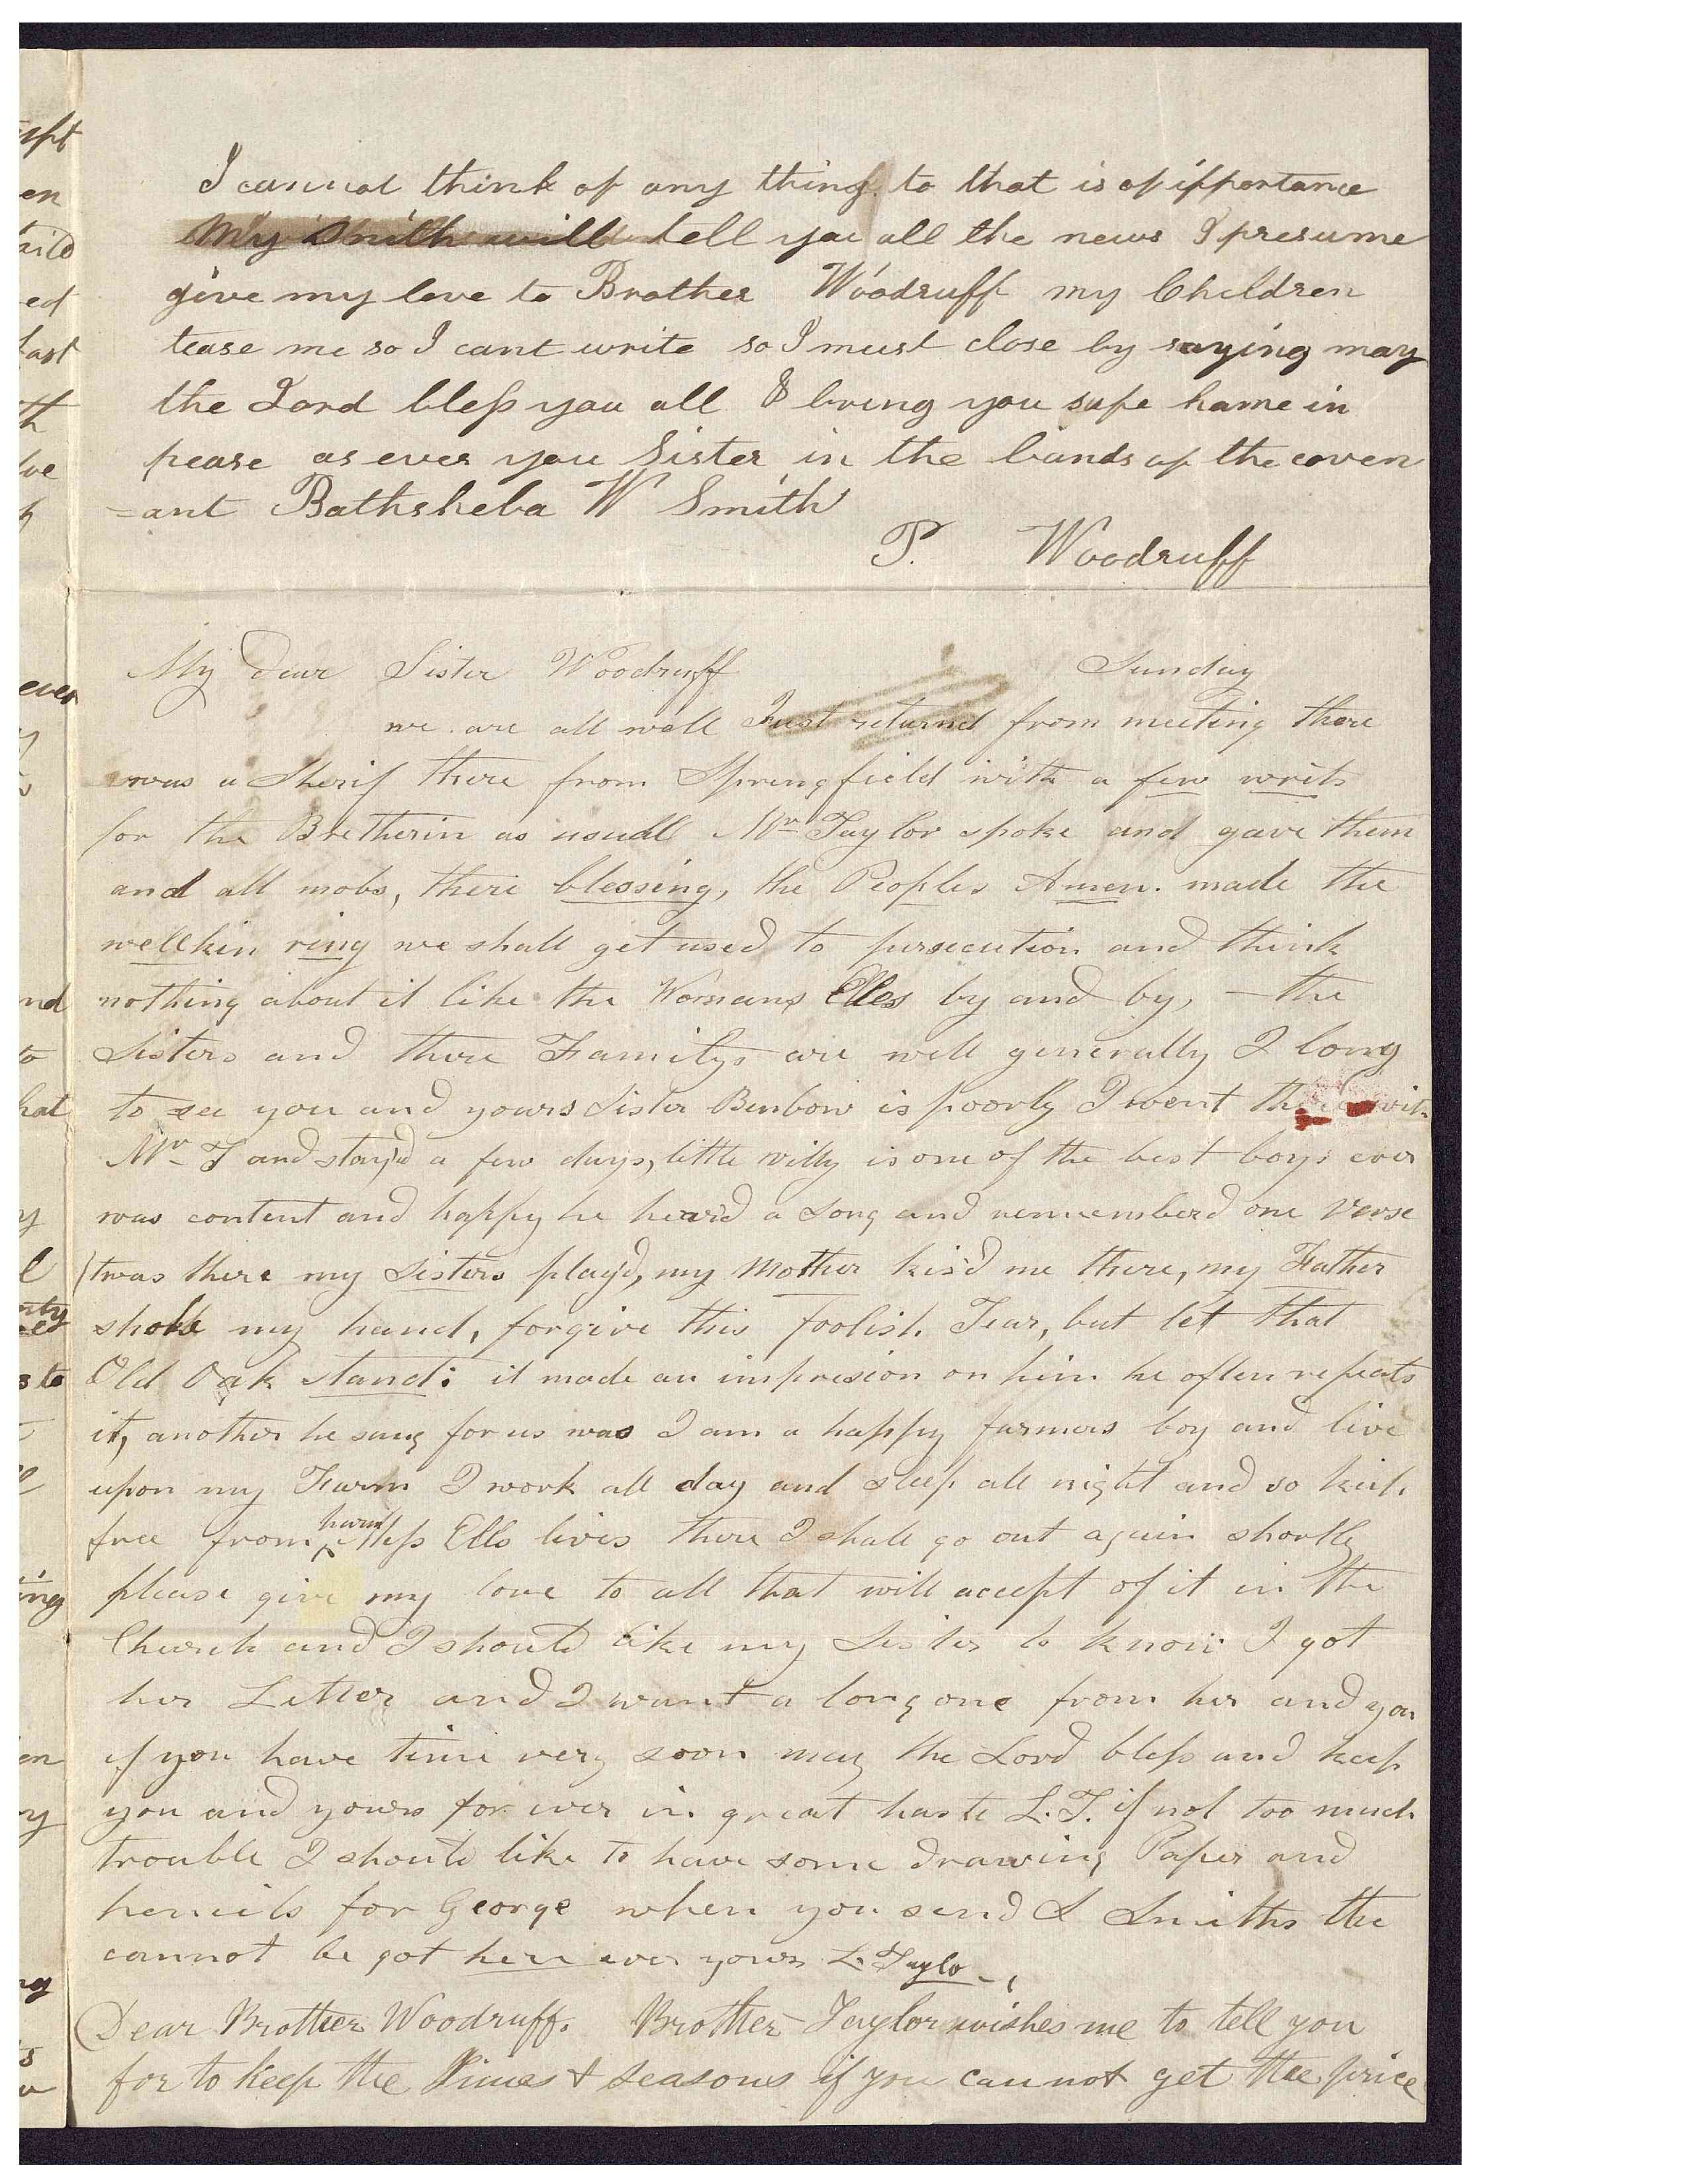 I cannot think of any thing to that is of ifportance
My Smith will tell you all the news I presume
give my love to Brother Woodruff my Children
tease me so I cant write so I must close by saying may
the Lord bless you all & bring you safe home in
pease as ever you Sister in the bands of the coven
=ant Bathsheba W Smith
P. Woodruff
My Dear Sister Woodruff Sunday
we are all well Just returnd from meeting there
was a Sherif there from Springfield with a few writs
for the Bretherin as usuall Mr Taylor spoke and gave them
and all mobs, there blessing, the Peoples Amen. made the
wellkin ring we shall get used to persecution and think
nothing about it like the Womans Elles by and by, — the
Sisters and there Familys are well generally I long
to see you and yours Sister Benbow is poorly I went there with
Mr T and stay'd a few days, little willy is one of the best boys ever
was content and happy he heard a song and rememberd one Verse
twas there my Sisters play'd, my Mother kis'd me there, my Father
shoke my hand, forgive this foolish Tear, but let that
Old Oak stand: it made an impresion on him he often repeats
it, another he sung for us was I am a happy farmers boy and live
upon my Farm I work all day and sleep all night and so kept
free from harm Miss Ells lives there I shall go out again shortly
please give my love to all that will accept of it in the
Church and I should like my Sister to know I got
her Letter and I want a long one from her and you
if you have time very soon may the Lord bless and keep
you and yours for ever in great haste L. T. if not too much
trouble I should like to have some drawing Paper and
pencils for George when you send S Smiths the
cannot be got here ever yours L. Taylo
Dear Brother Woodruff. Brother Taylor wishes me to tell you
for to keep the Times & Seasons if you cannot get the price